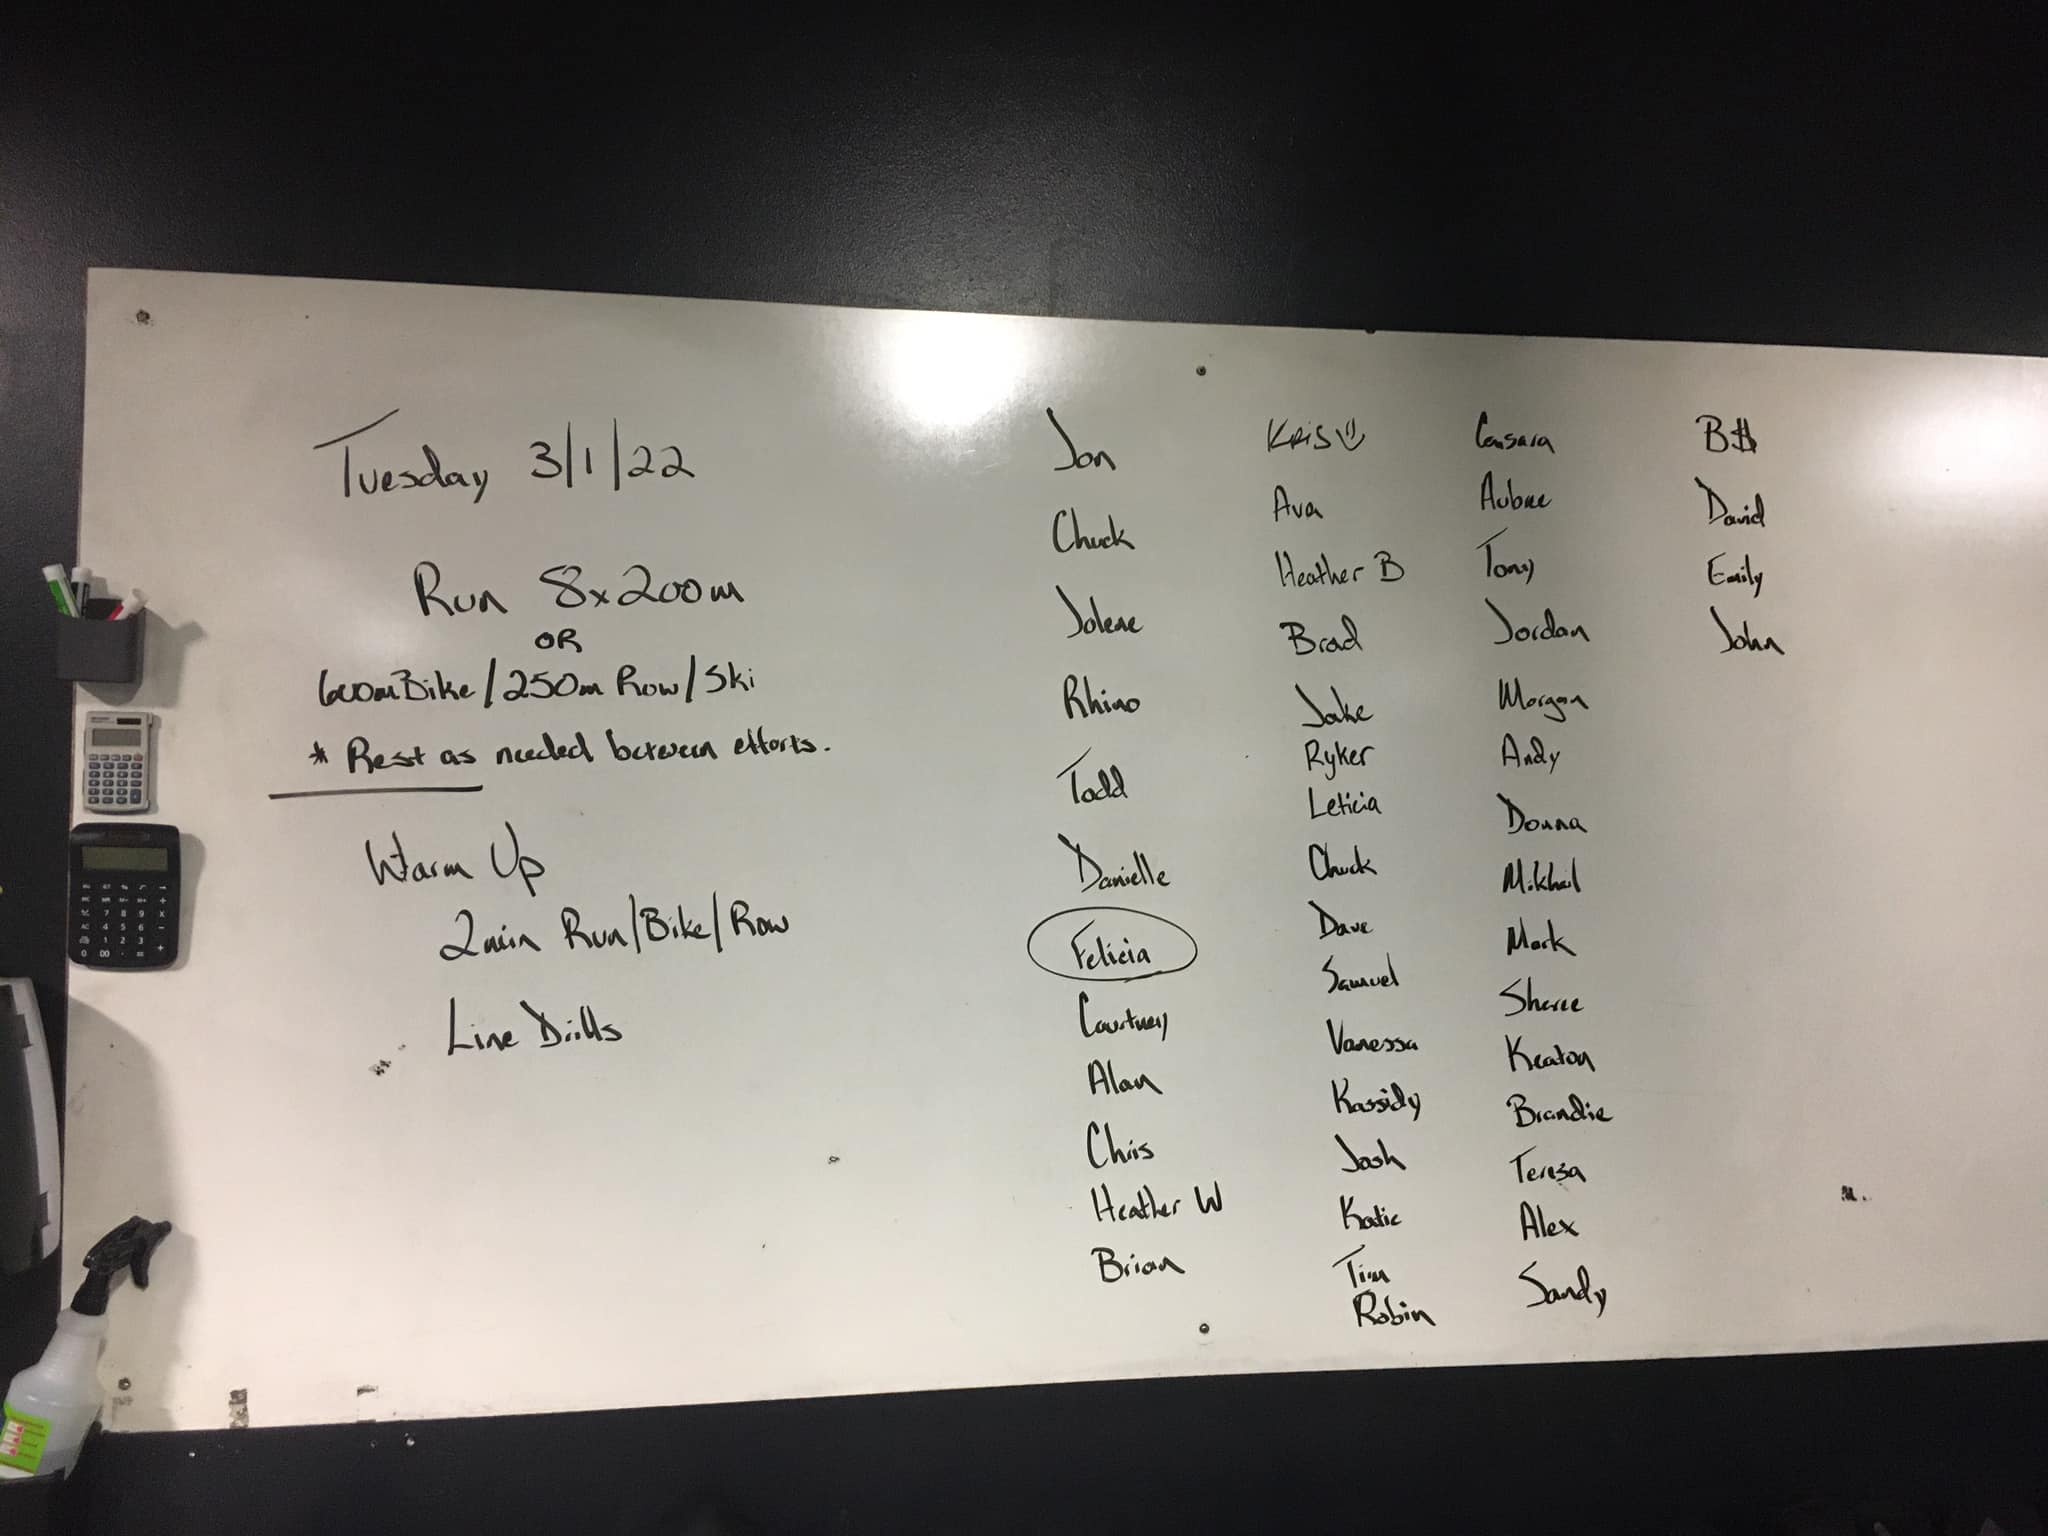 Tuesday 3/1/22
Run 8x200m
OR
600m Bike/250m Row/Ski
* Rest as needed between efforts.
Warm Up
2min Run/Bike/Row
Line Drills
Jon
Chuck
Jolene
Rhino
Todd
Danielle
Felicia
Courtney
Alan
Chris
Heather W
Brian
KRIS
Ava
Heather B
Brad
Jake
Ryker
Leticia
Chuck
Dave
Samuel
Vanessa
Kassidy
Josh
Katie
Tim
Robin
Aubree
Tony
Jordan
Morgan
Andy
Donna
Mikhail
Mark
Sheree
Keaton
Brandie
Teresa
Alex
Sandy
B$
David
Emily
John